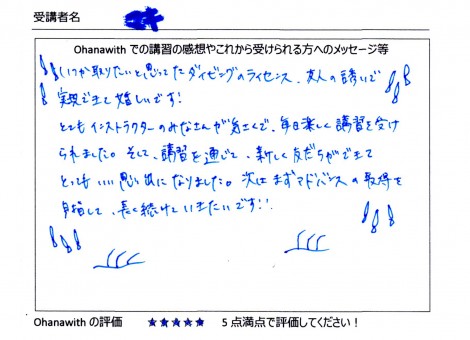 受講者名
Ohanawith での講習の感想やこれから受けられる方へのメッセージ等
いつか取りたいと思ってたダイビングのライセンス、友人の誘いで
実現できて嬉しいです!
とてもインストラクターのみなさんが気さくで、毎日楽しく講習を受け
られました。そして、講習を通じて、新しく友だちができて
とってもいい思い出になりました。次はまずアドバンスの取得を
目指して、長く続けていきたいです!!
Ohanawith の評価 ★★★★★ 5 点満点で評価してください!